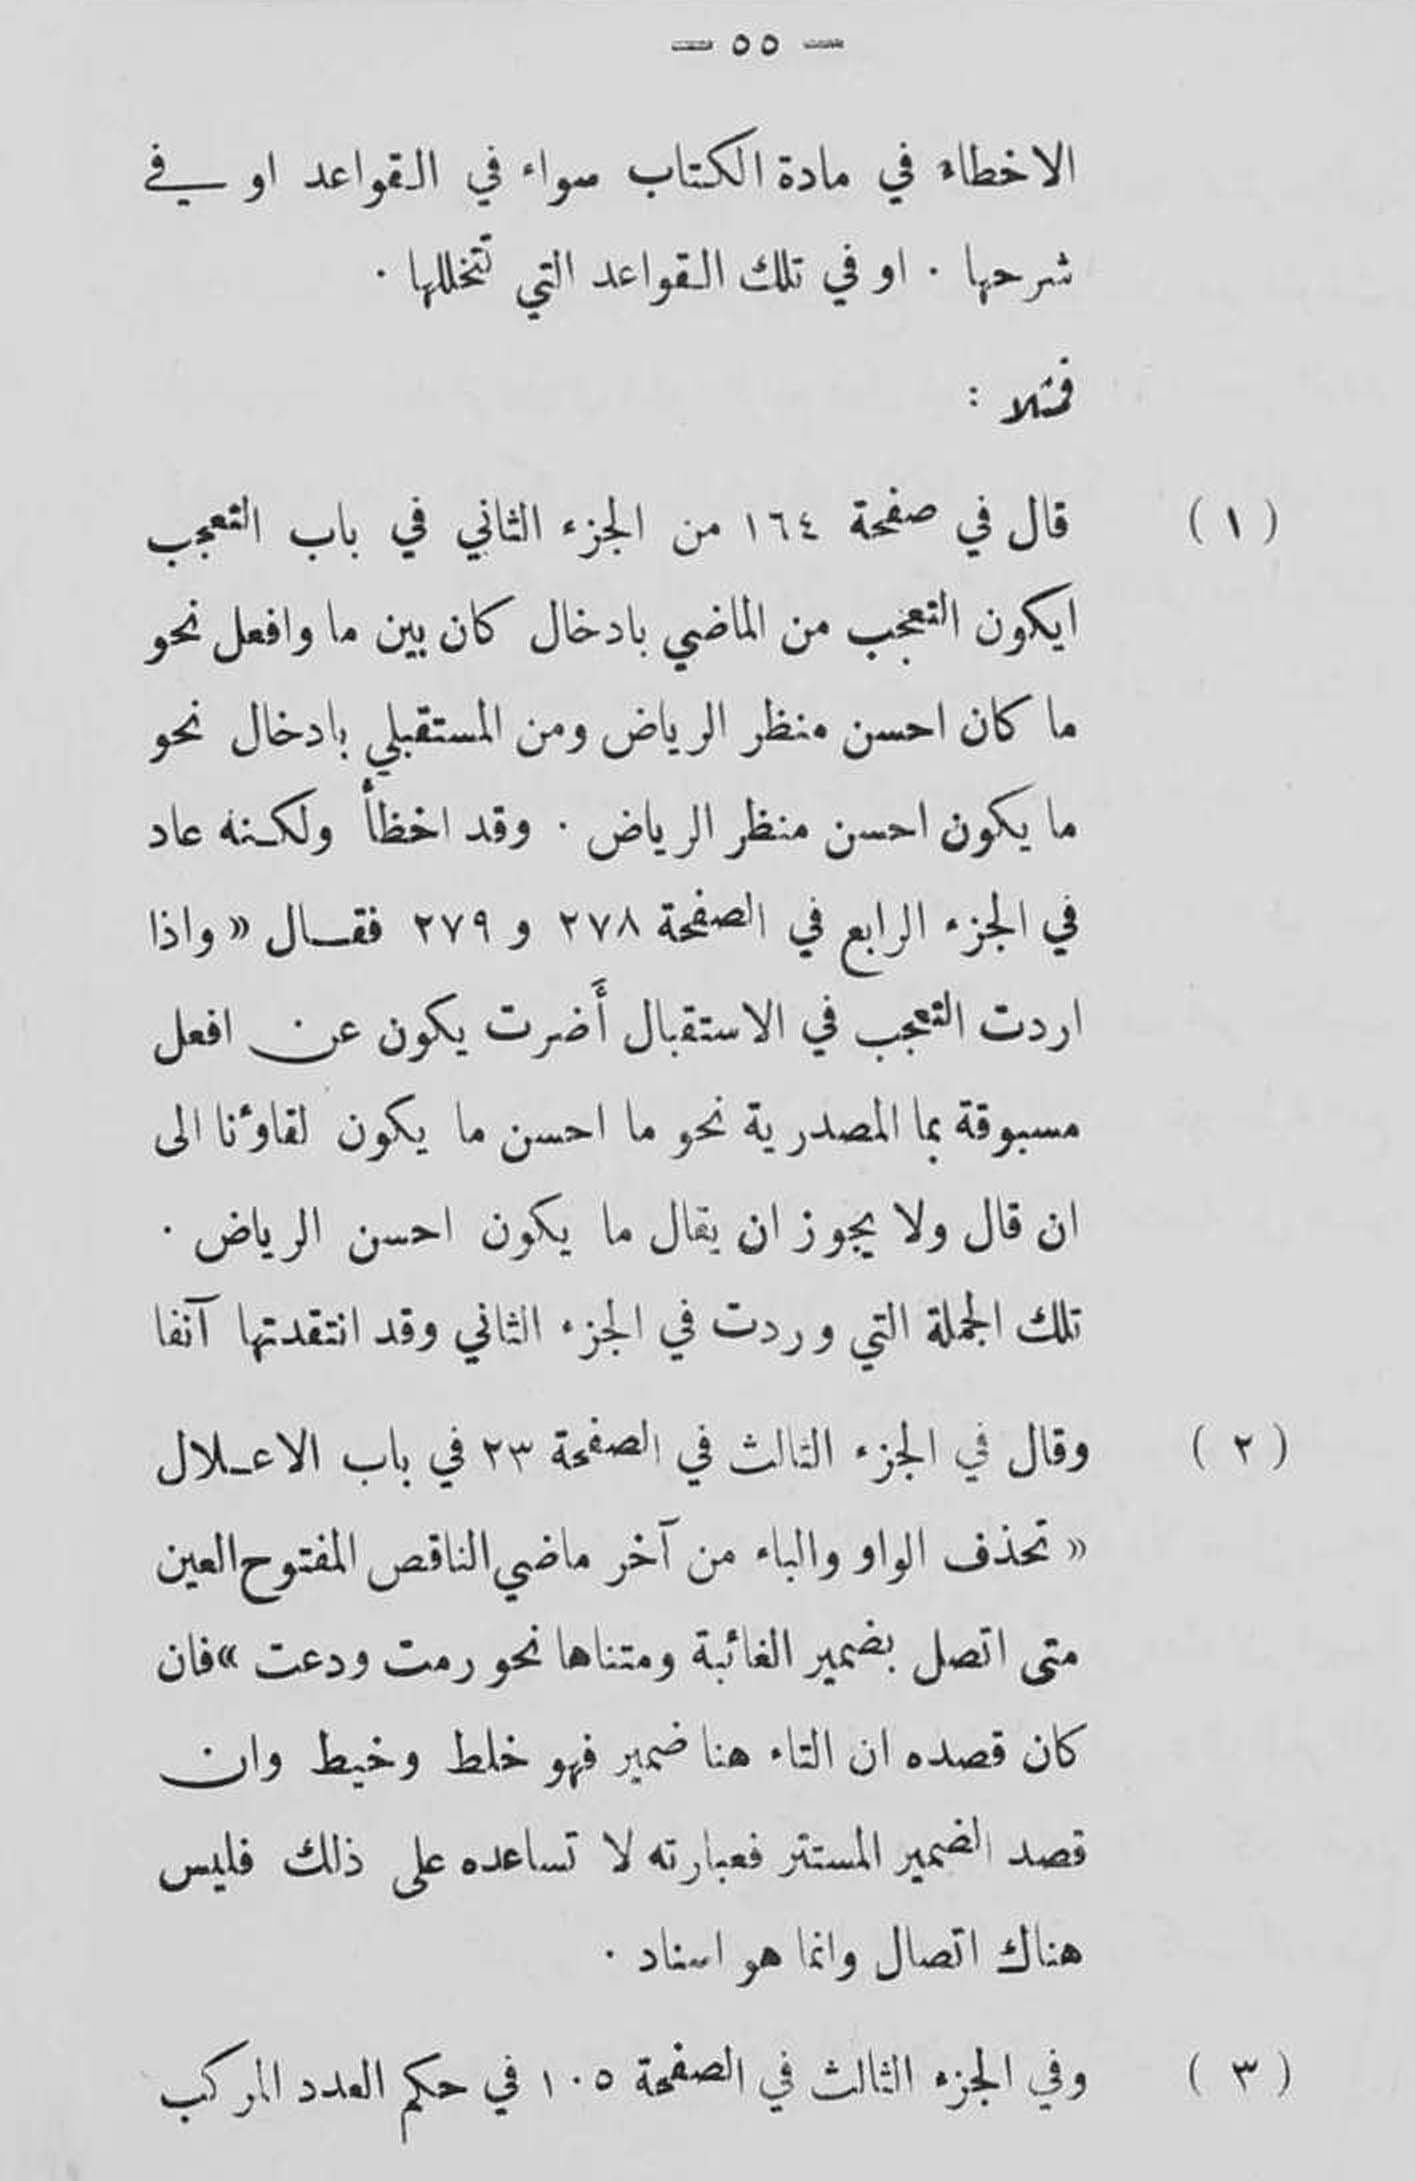 — ٥٥ —
الاخطاء في مادة الكتاب سواء في القواعد او في
شرحها . او في تلك القواعد التي تتخللها .
فمثلا :
( ١ ) قال في صفحة ١٦٤ من الجزء الثاني في باب التعجب
ايكون التعجب من الماضي بادخال كان بين ما وافعل نحو
ما كان احسن منظر الرياض ومن المستقبلي بادخال نحو
ما يكون احسن منظر الرياض . وقد اخظأ ولكنه عاد
في الجزء الرابع في الصفحة ٢٧٨ و ٢٧٩ فقال « واذا
اردت التعجب في الاستقبال أَضرت يكون عن افعل
مسبوقة بما المصدرية نحو ما احسن ما يكون لقاؤنا الى
ان قال ولا يجوز ان يقال ما يكون احسن الرياض .
تلك الجملة التي وردت في الجزء الثاني وقد انتقدتها آنفا
( ٢ ) وقال في الجزء الثالث في الصفحة ٢٣ في باب الاعلال
« تحذف الواو والباء من آخر ماضي الناقص المفتوح العين
متى اتصل بضمير الغائبة ومتناها نحو رمت ودعت » فان
كان قصده ان التاء هنا ضمير فهو خلط وخيط وان
قصد الضمير المستتر فعبارته لا تساعده على ذلك فليس
هناك اتصال وانما هو اسناد .
( ٣ ) وفي الجزء الثالث في الصفحة ١٠٥ في حكم العدد المركب